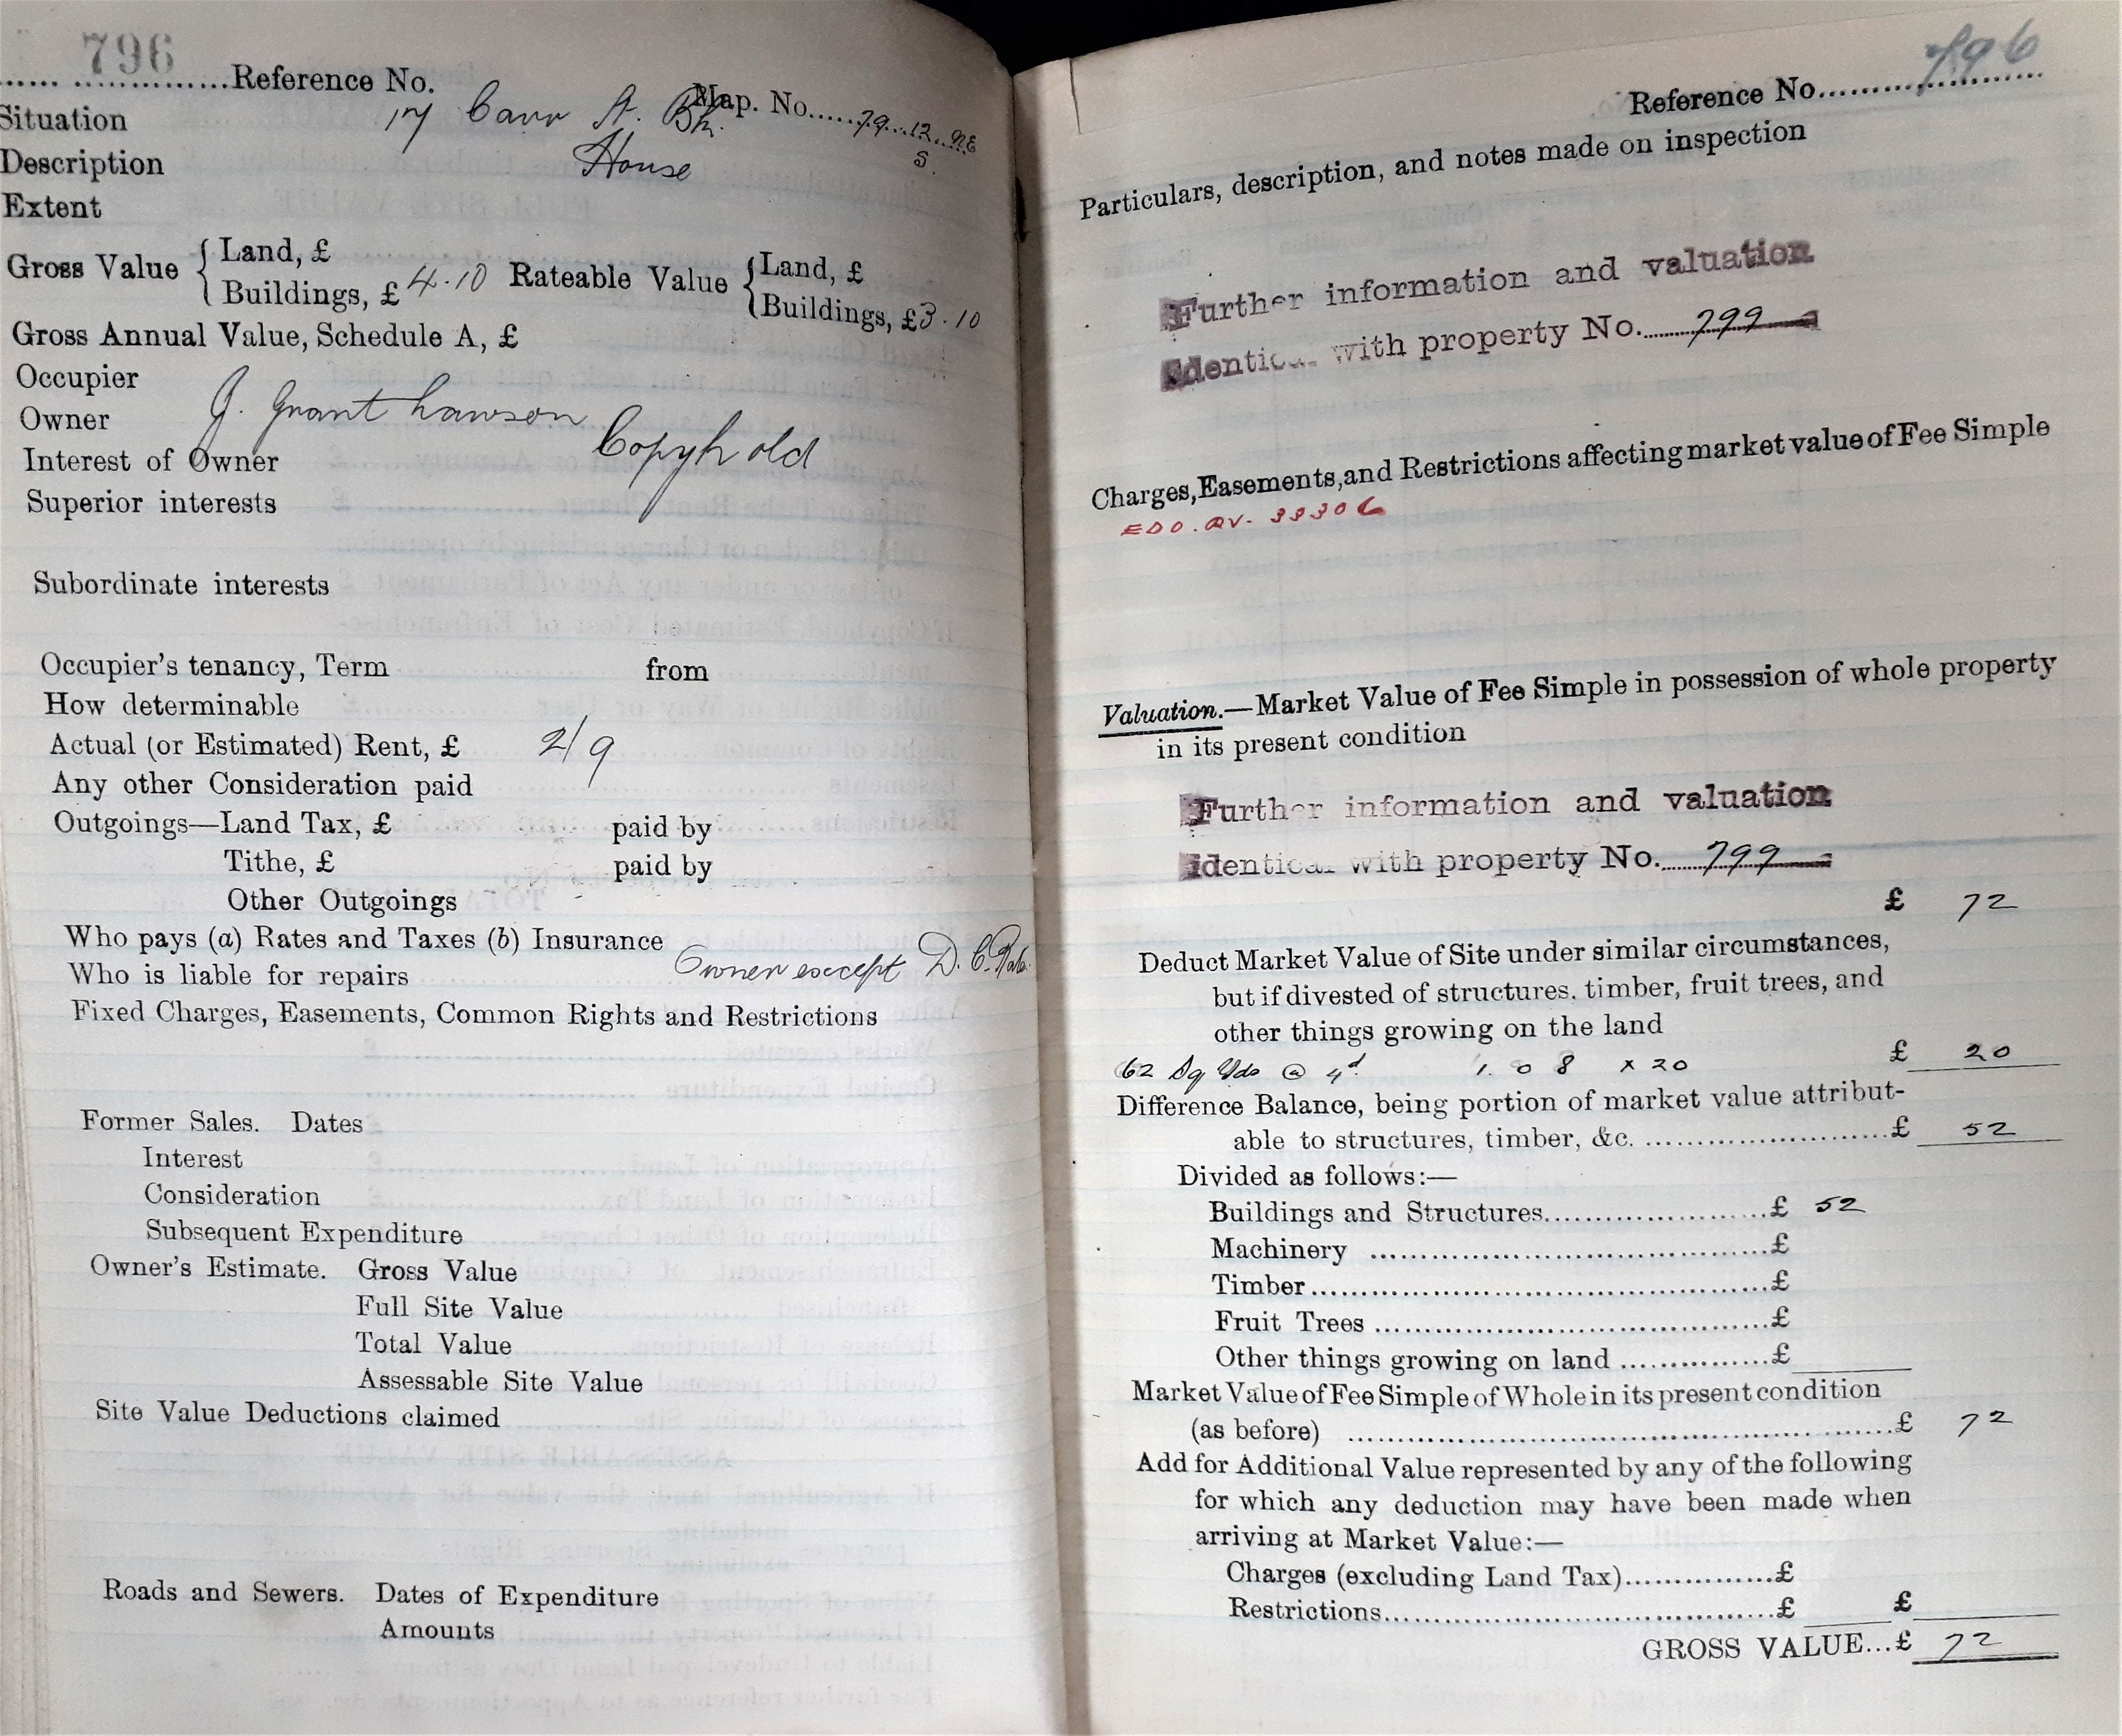 796
Reference No.
Map. No. 79. 12. NE
S.
Situation 17 Carr St. Bk.
Description House
Extent
Gross Value { Land, £
Buildings, £ 4.10 Rateable Value { Land, £
Buildings, £3.10
Gross Annual Value, Schedule A, £
Occupier
Owner J. Grant Lawson
Interest of Owner Copyhold
Superior interests
Subordinate interests
Occupier's tenancy, Term from
How determinable
Actual (or Estimated) Rent, £ 2/9
Any other Consideration paid
Outgoings—Land Tax, £ paid by
Tithe, £ paid by
Other Outgoings
Who pays (a) Rates and Taxes (b) Insurance
Who is liable for repairs Owner except D. C. Rate
Fixed Charges, Easements, Common Rights and Restrictions
Former Sales. Dates
Interest
Consideration
Subsequent Expenditure
Owner's Estimate. Gross Value
Full Site Value
Total Value
Assessable Site Value
Site Value Deductions claimed
Roads and Sewers. Dates of Expenditure
Amounts
796
Reference No.
Particulars, description, and notes made on inspection
Further information and valuation
identical with property No. 799
Charges, Easements, and Restrictions affecting market value of Fee Simple
EDO. RV. 33306
Valuation.—Market Value of Fee Simple in possession of whole property
in its present condition
Further information and valuation
identical with property No. 799
£ 72
Deduct Market Value of Site under similar circumstances,
but if divested of structures, timber, fruit trees, and
other things growing on the land
62 Sq Yds @ 4d 1. 0 8 x 20 £ 20
Difference Balance, being portion of market value attribut-
able to structures, timber, &c. £ 52
Divided as follows:—
Buildings and Structures £ 52
Machinery £
Timber £
Fruit Trees £
Other things growing on land £
Market Value of Fee Simple of Whole in its present condition
(as before) £ 72
Add for Additional Value represented by any of the following
for which any deduction may have been made when
arriving at Market Value:—
Charges (excluding Land Tax) £
Restrictions £ £
GROSS VALUE...£ 72